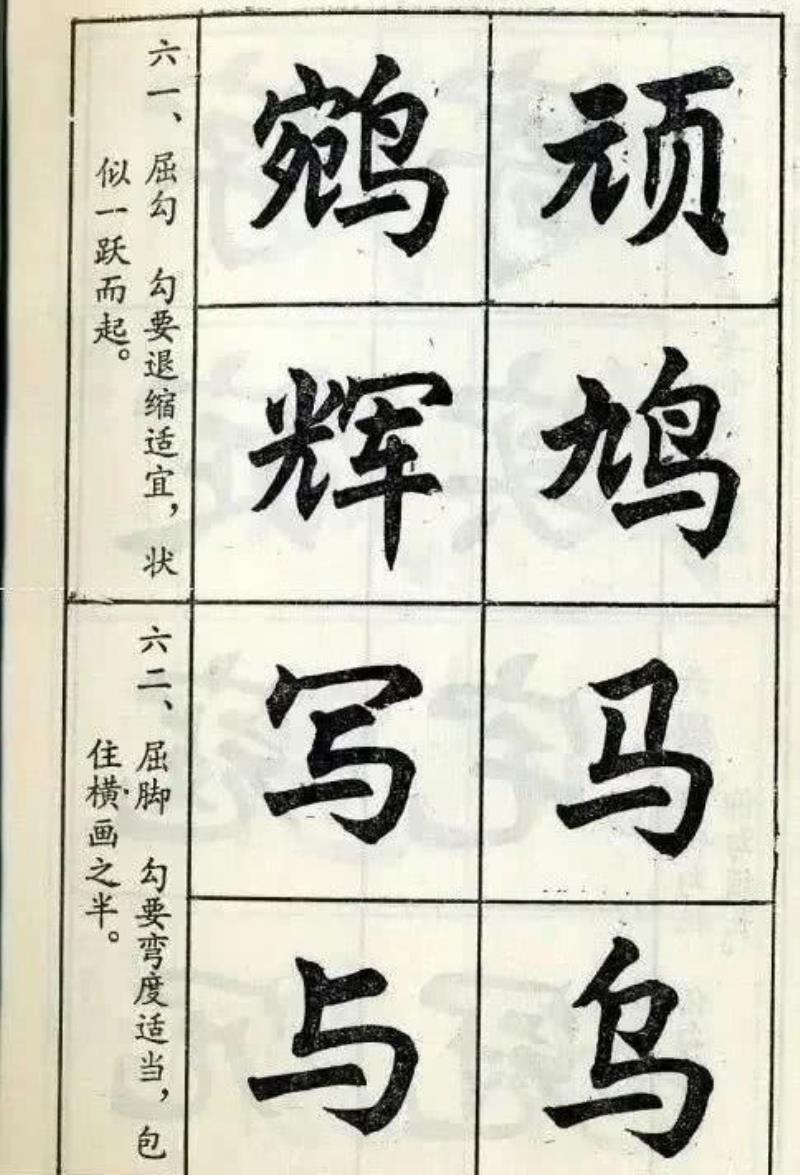 六一、屈勾　勾要退缩适宜，状
似一跃而起。
顽鹓
鸠辉
六二、屈脚　勾要弯度适当，包
住横画之半。
马写
乌与